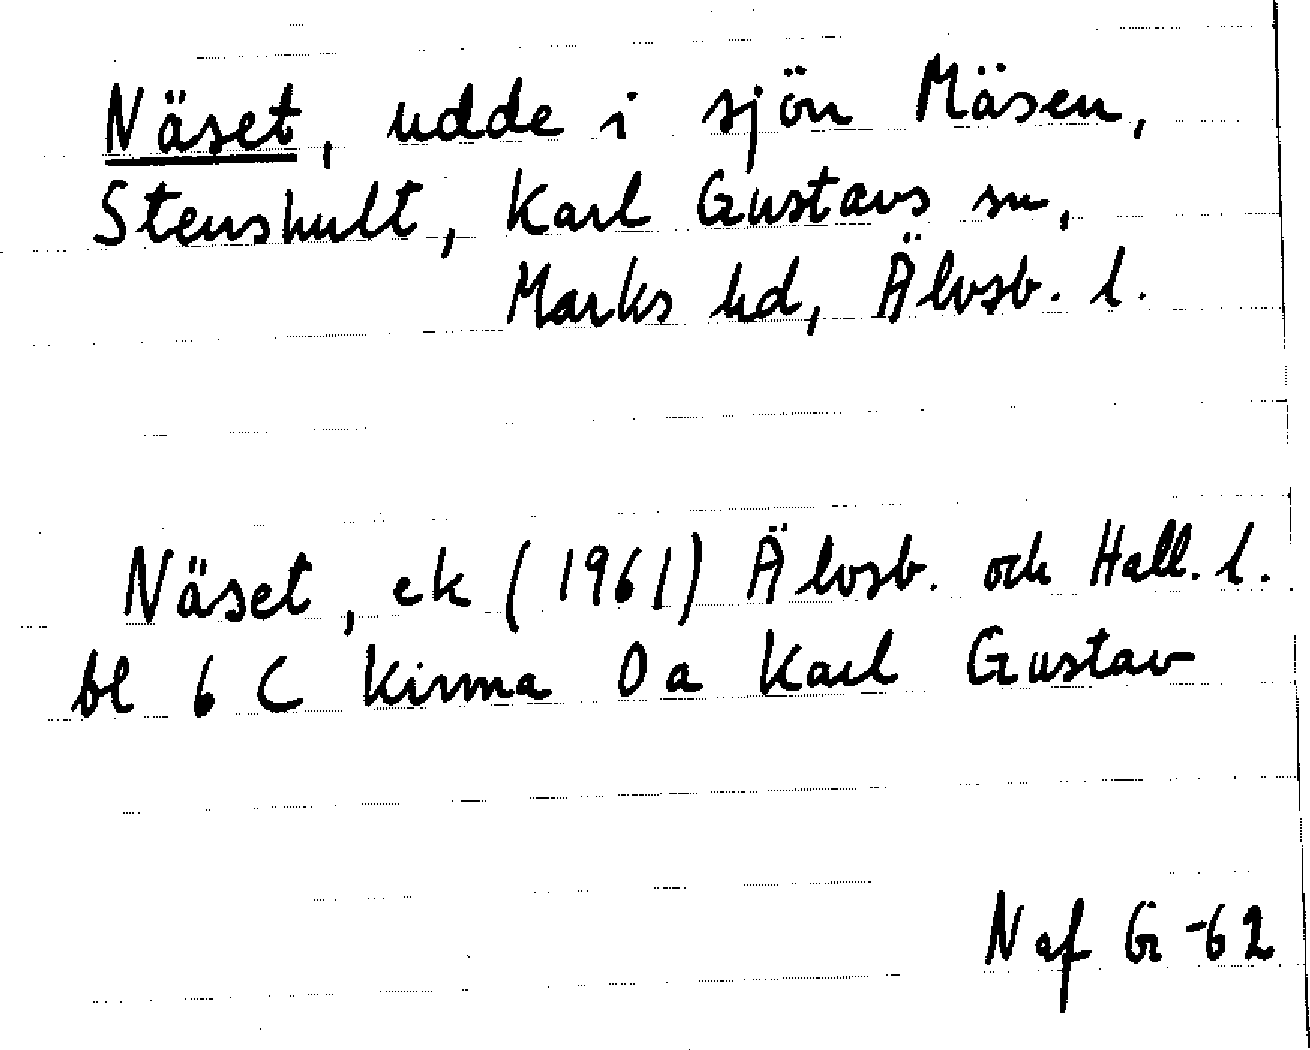 Näset, udde i sjön Mäsen,
Stenshult, Karl Gustavs sn,
Marks hd, Älvsb. l.
Näset, ek (1961) Älvsb. och Hall. l.
bl 6 C Kinna 0 a Karl Gustav
Naf G -62